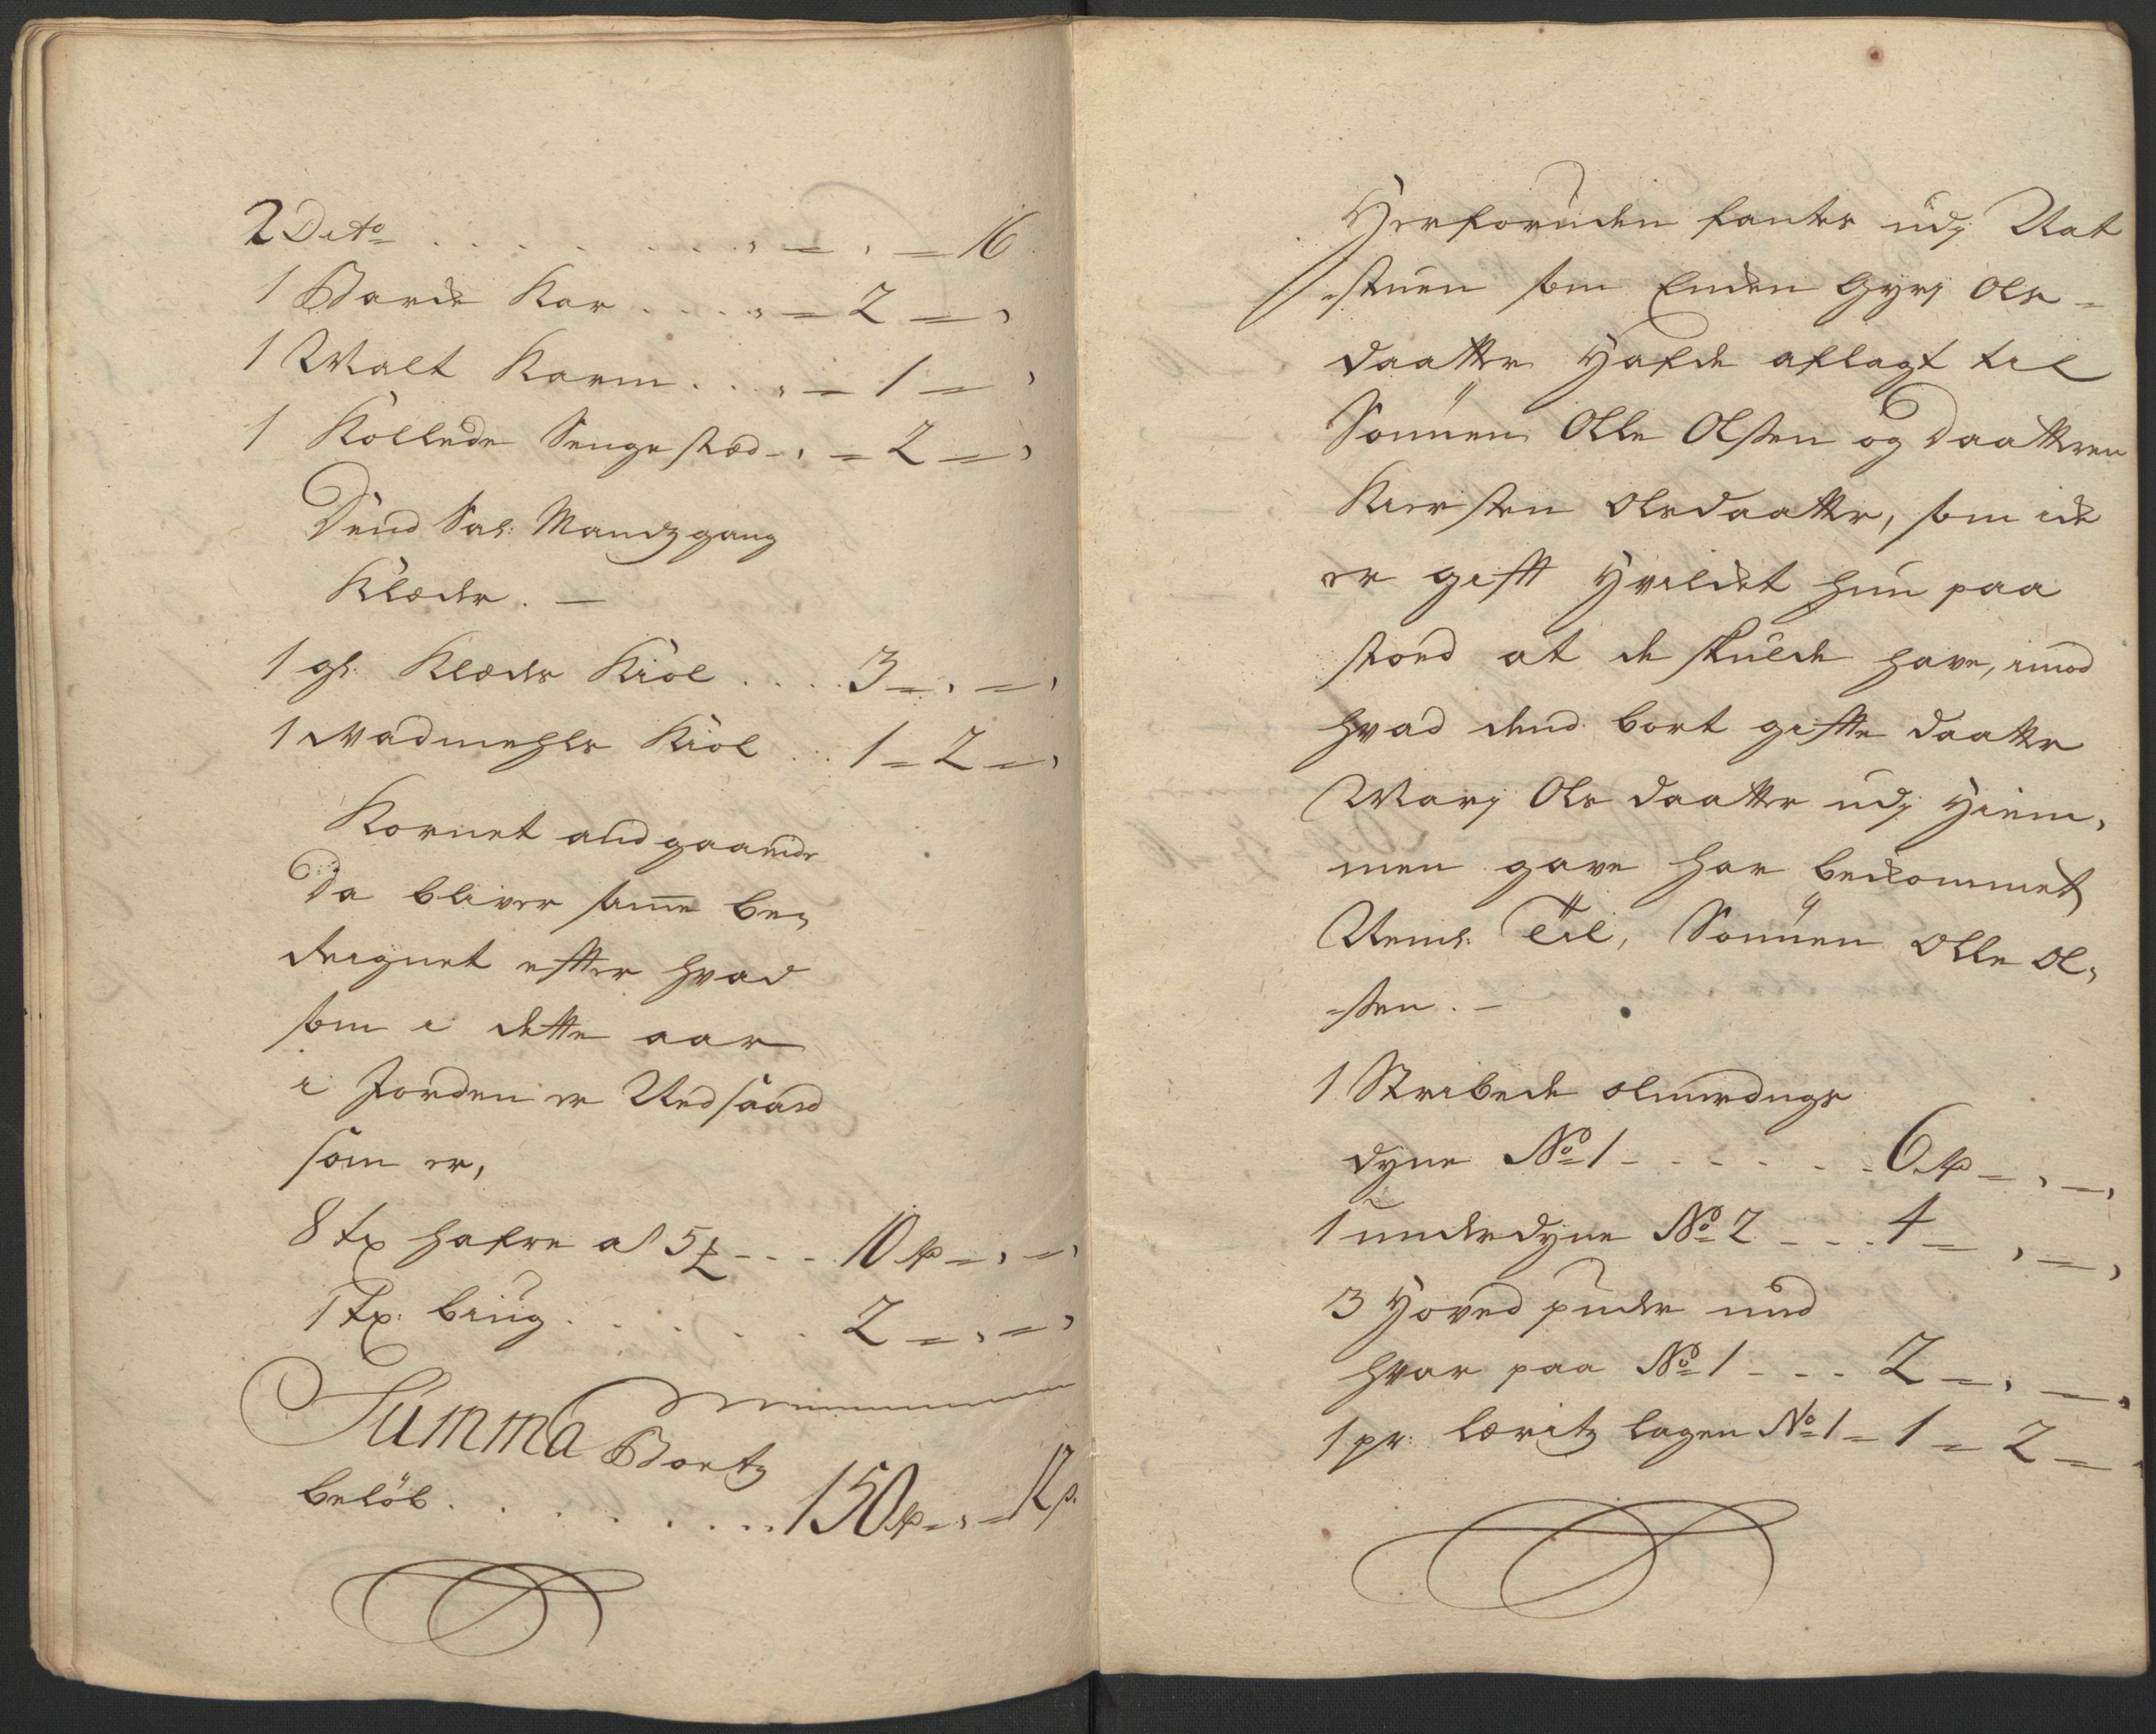 2 Dito . . . . . . . , = , = 16
1 Barde Kar . . . . , = 2 = ,
1 Malt Karm . . . , = 1 = ,
1 Kollede Sengestæd - , = 2 = ,
Dend Sal: Mandz gang
Klæder. —
1 gl: Klæder Kiol . . . . 3 = , = ,
1 Wadmehls Kiol . . 1 = 2 = ,
Kornet andgaaende
Da bliver samme be,
reignet effter hvad
som i dette aar
i Jorden er Nedsaaed
som er,
8 tr hafre a 5 - - - 10 = , = ,
1 tr: biug . . . . . . 2 = , = ,
Summa Bortz
beløb . . . . . . . 150 = , = 12 s.
Herforuden fantes udj Rat
stuen som Enken Gyrj Ols =
daatter hafde aflagt til
Sønnen Olle Olsen og Daatteren
Kiersten Olsdaatter, som icke
er gifft hvilcket hun paa
stoed at de skulde have, imod
hvad dend bort giffte daatter
Marj Ols daatter udj Hiem,
men gave har beckommet
Neml: Til, Sønnen Olle Ol,
=sen. —
1 Stribede olmerdugs
dyne No 1 - - - - - - 6 = , = ,
1 underdyne No 2 - - - 4 = , = ,
3 Hoved puder und
hvar paa No 1 - - - 2 = , = ,
1 pr: lærritz lagen No 1 = 1 = 2 = ,